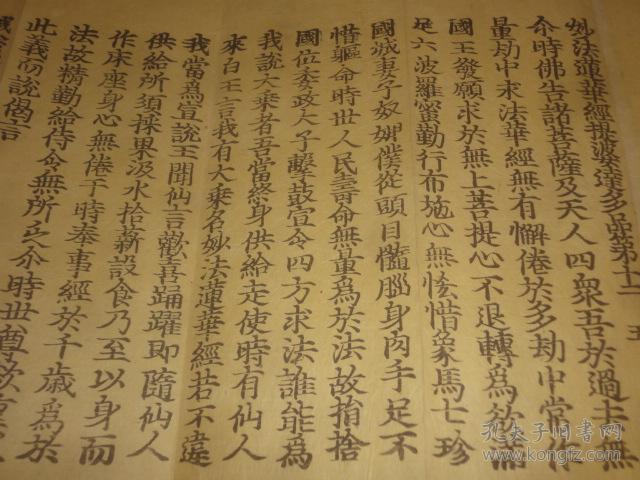 妙法蓮華經提婆達多品第十二 五
尒時佛告諸菩薩及天人四衆吾於過去無
量劫中求法華經無有懈倦於多劫中常作
國王發願求於無上菩提心不退轉為欲滿
足六波羅蜜勤行布施心無悋惜象馬七珍
國城妻子奴婢僕從頭目髓腦身肉手足不
惜軀命時世人民壽命無量為於法故捐捨
國位委政太子擊鼓宣令四方求法誰能為
我說大乘者吾當終身供給走使時有仙人
來白王言我有大乘名妙法蓮華經若不違
我當為宣說王聞仙言歡喜踊躍即隨仙人
供給所須採果汲水拾薪設食乃至以身而
作床座身心無倦于時奉事經於千歲為於
法故精勤給侍令無所乏尒時世尊欲
此義而說偈言
孔夫子旧书网
www.kongfz.com